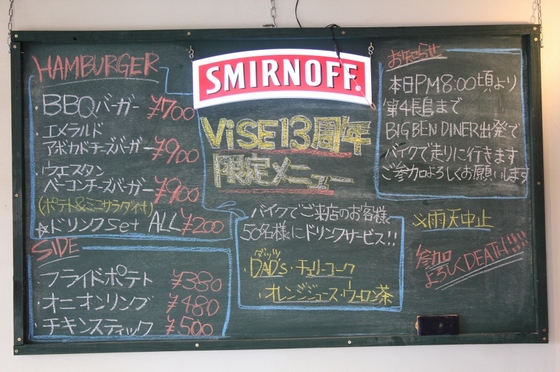 HAMBURGER
・BBQバーガー ¥700
・エメラルド
アボカドチーズバーガー ¥900
・ウエスタン
ベーコンチーズバーガー ¥900
(ポテト&ミニサラダ付)
☆ドリンクSet ALL ¥200
SIDE
・フライドポテト ¥380
・オニオンリング ¥480
・チキンスティック ¥500
SMIRNOFF
ViSE13周年
限定メニュー
バイクでご来店のお客様、
50名様にドリンクサービス!!
ダッツ
・DAD's・チェリーコーク
・オレンジジュース・ウーロン茶
お知らせ
本日PM8:00頃より
BIG BEN DINER出発で
バイクで走りに行きます
ご参加よろしくお願いします
※雨天中止
参加
よろしくDEATH!!!!